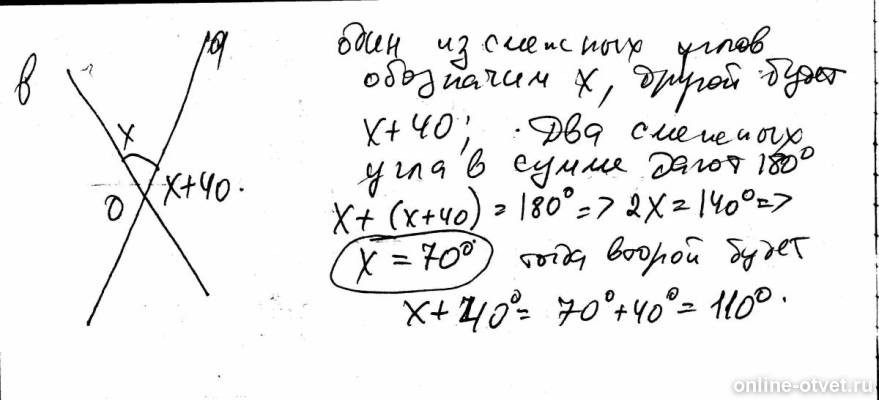 в
a
x
x+40.
0
один из смежных углов
обозначим x, другой будет
x+40; Два смежных
угла в сумме дают 180°
x+(x+40)=180°=> 2x=140°=>
x=70° тогда второй будет
x+40°= 70°+40°=110°.
online-otvet.ru